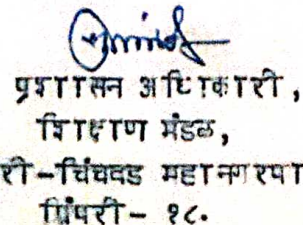 प्रशासन अधिकारी,
शिक्षण मंडळ,
री-चिंचवड महानगरपा
पिंपरी- १८.